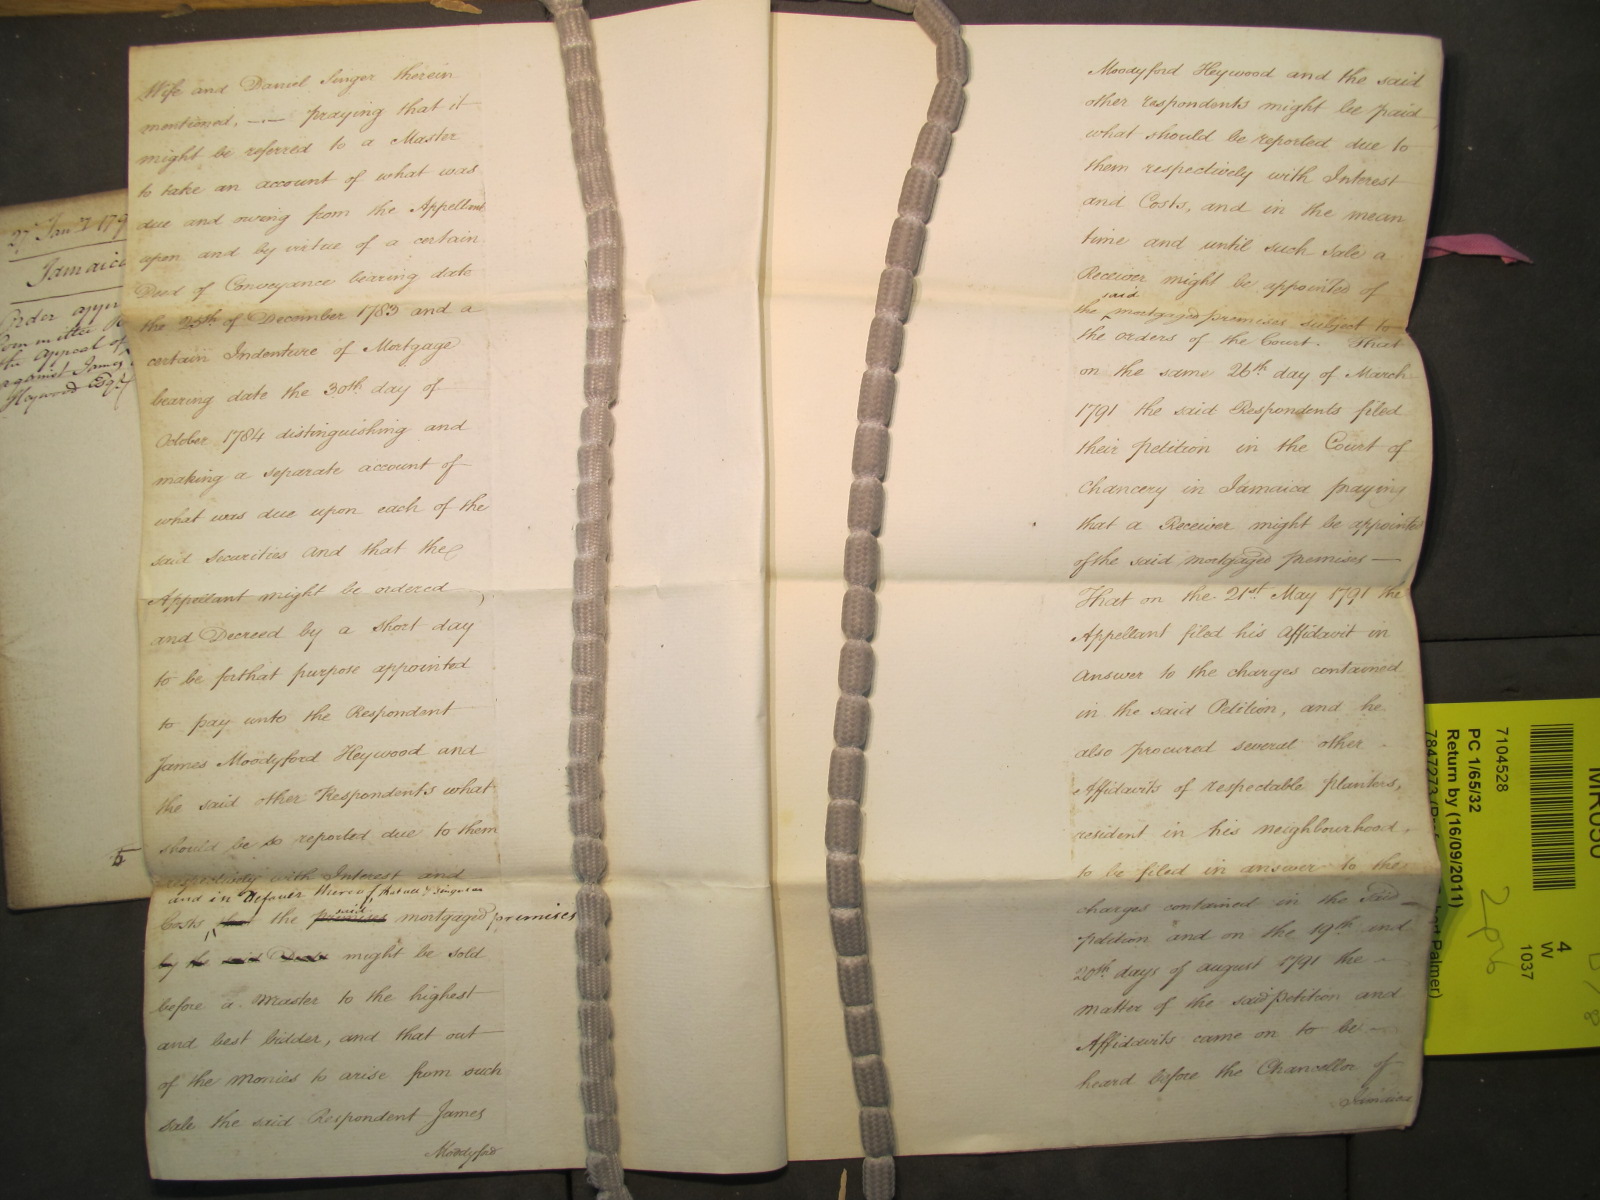 Wife and Daniel Singer therein
mentioned. —— praying that it
might be referred to a Master
to take an account of what was
due and owing from the Appellant
upon and by virtue of a certain
Deed of Conveyance bearing date
the 25th of December 1783 and a
certain Indenture of Mortgage
bearing date the 30th day of
October 1784 distinguishing and
making a separate account of
what was due upon each of the
said Securities and that the
Appellant might be ordered
and Decreed by a short day
to be forthat purpose appointed
to pay unto the Respondent
James Moodyford Heywood and
the said other Respondents what
should be so reported due to them
respectively with Interest and
and in Default thereof,
Costs the said mortgaged premises
might be sold
before a Master to the highest
and best bidder, and that out
of the Monies to arise from such
sale the said Respondent James
Moodyford
Moodyford Heywood and the said
other respondents might be paid
what should be reported due to
them respectively with Interest
and Costs, and in the mean
time and until such sale a
Receiver might be appointed of
said
the mortgaged premises subject to
the orders of the Court. That
on the same 26th day of March
1791 the said Respondents filed
their petition in the Court of
Chancery in Jamaica praying
that a Receiver might be appointed
of the said mortgaged premises —
That on the 21st May 1791 the
Appellant filed his Affidavit in
answer to the charges contained
in the said Petition, and he
also procured several other
Affidavits of respectable planters,
resident in his neighbourhood,
to be filed in answer to the
charges contained in the said
petition and on the 19th and
20th days of august 1791 the
matter of the said petition and
Affidavits came on to be
heard before the Chancellor of
Jamaica
27 Jany 179
Jamaica
Order
Committee
the appeal of
against James
Heywood Esqr
7104528
PC 1/65/32
Return by (16/09/2011)
7847273
Palmer)
4
W
1037
MR050